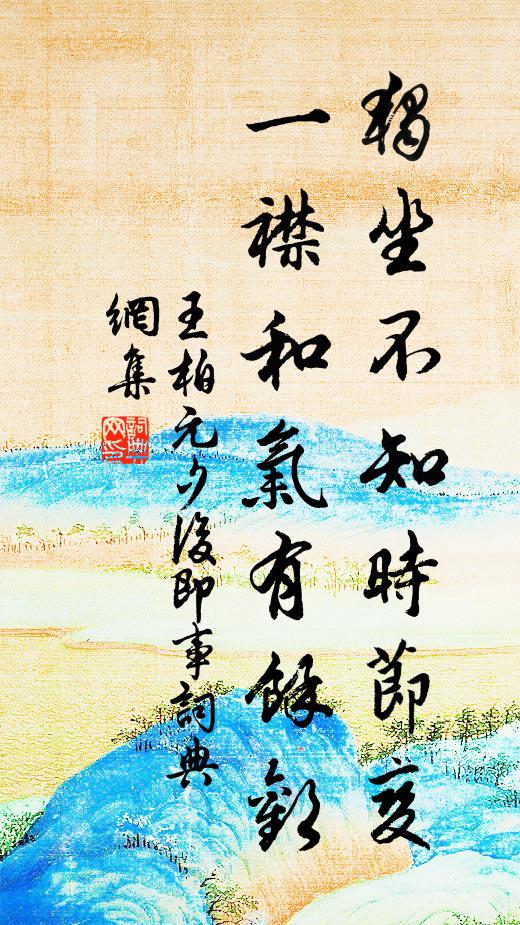 獨坐不知時節變
一襟和氣有餘歡
王柏元夕後即事詞典
網集